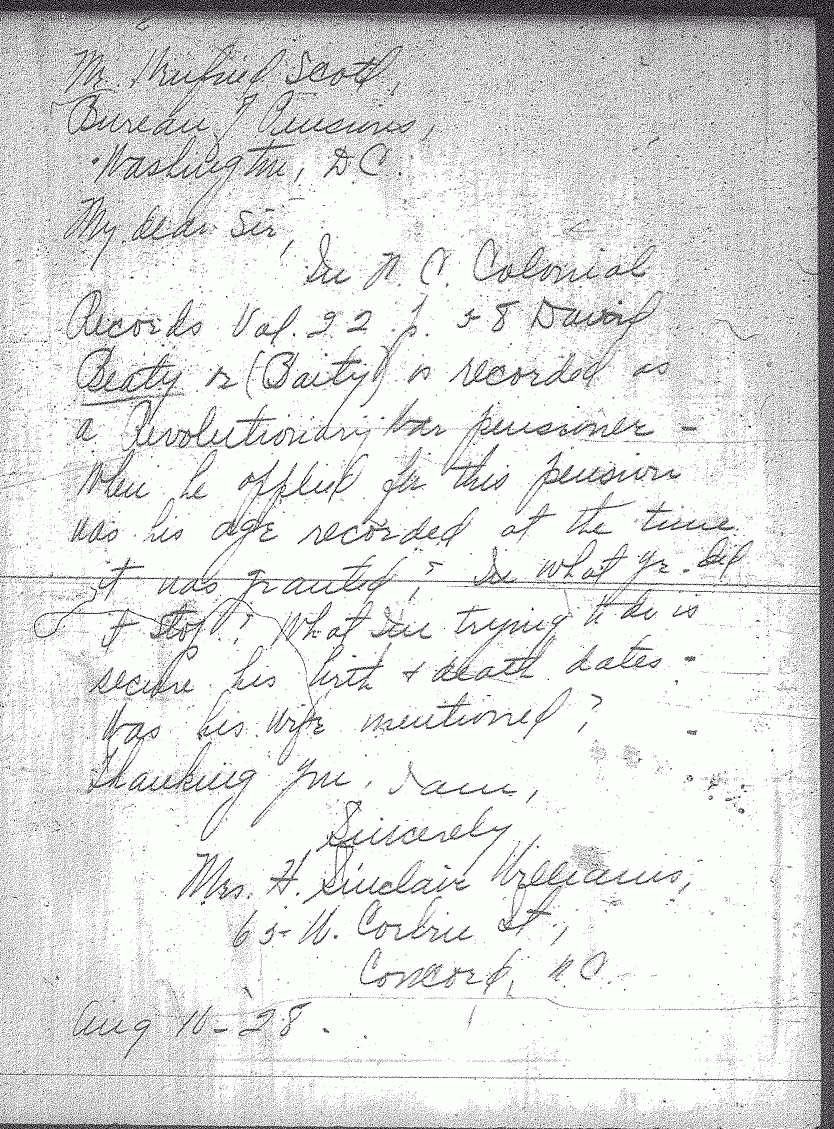 Mr. Winfried Scott,
Bureau of Pensions,
Washington, D.C.
My dear Sir,
In N. C. Colonial
Records Vol. 22 p. 58 David
Beaty or (Baity) is recorded as
a Revolutionary War pensioner -
When he applied for this pension
was his age recorded at the time
it was granted? In what yr. did
it stop? What I'm trying to do is
secure his birth & death dates -
Was his wife mentioned?
Thanking you, I am,
Sincerely
Mrs. H. Sinclair Williams,
65 W. Corbin St,
Concord, N.C.
Aug 16 - 28.